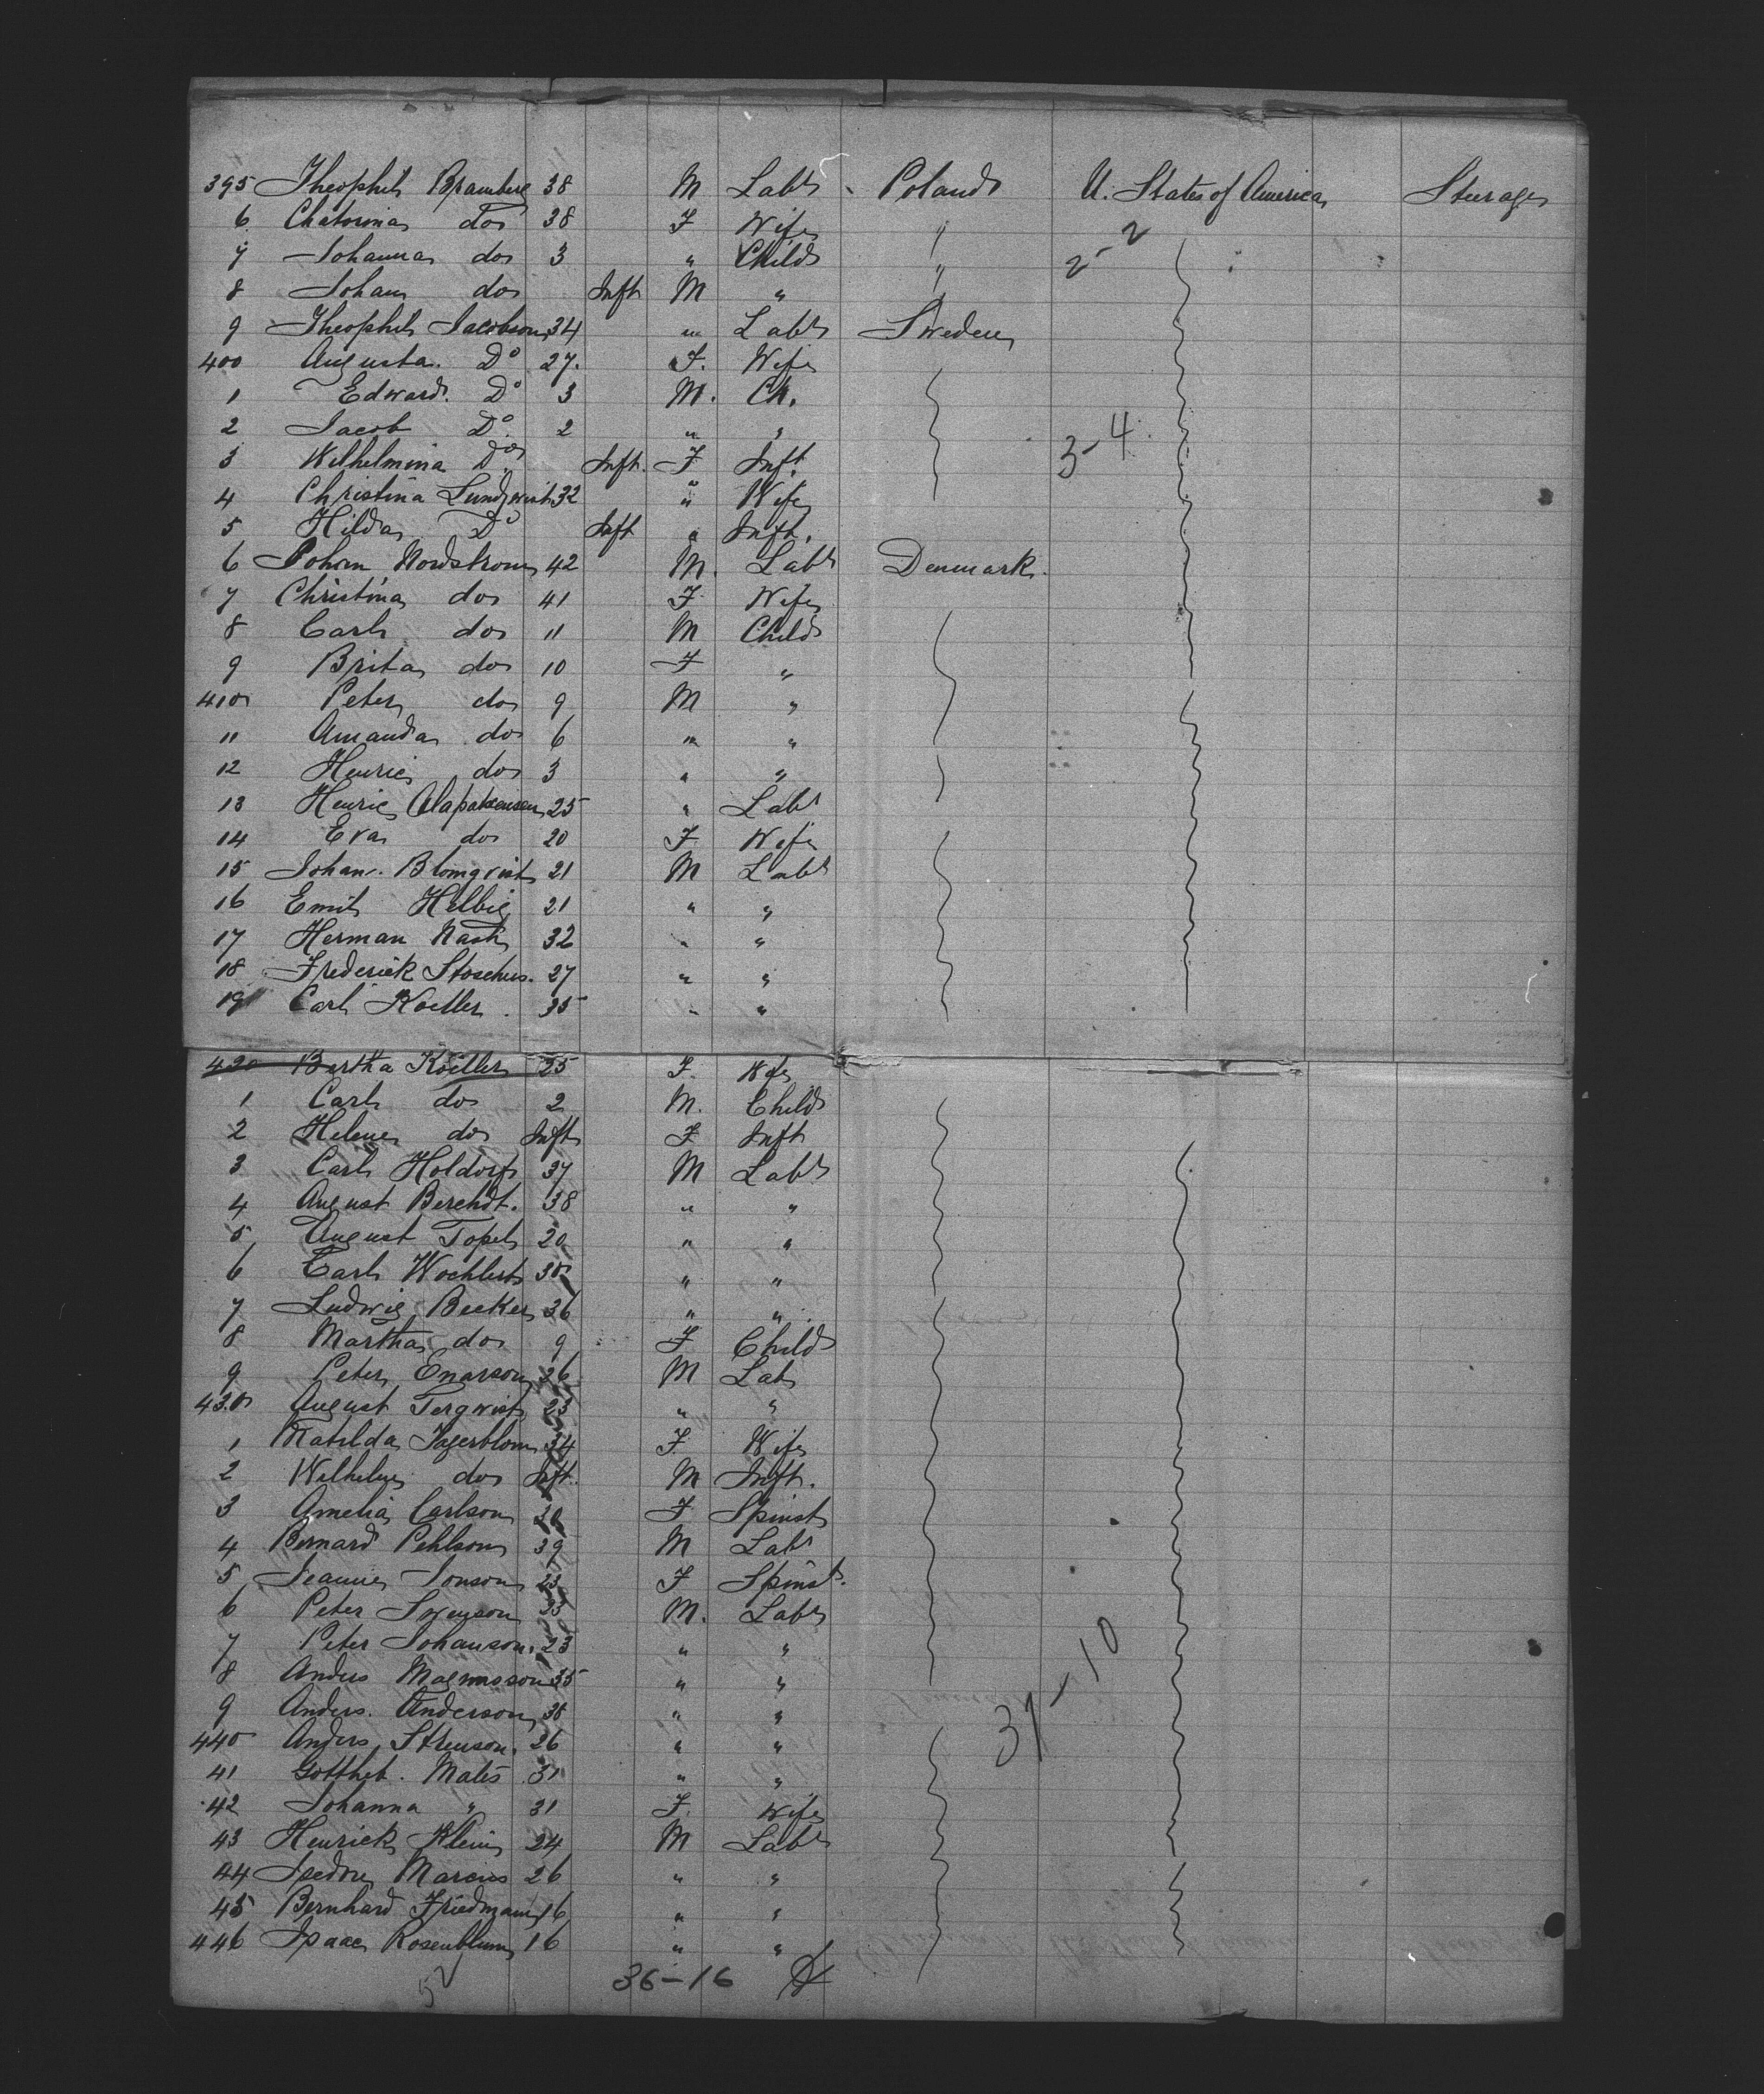 395 Theophil Bramberg 38 M Labr Poland U. States of America Steerage
6 Chatorina do 38 F Wife "
7 Johanna do 3 " Child " 2-2
8 Johan do Inft M " "
9 Theophil Jacobson 34 " Labr Sweden
400 Augusta. Do 27. F. Wife
1 Edward. Do 3 M. Ch.
2 Jacob Do 2 " " 3-4
3 Wilhelmina Do Inft. F Inft.
4 Christina Lundqvist 32 " Wife
5 Hilda Do Inft " Inft.
6 Johan Nordstrom 42 M. Labr Denmark.
7 Christina do 41 F Wife
8 Carl do 11 M Child
9 Brita do 10 F "
410 Peter do 9 M "
11 Amanda do 6 " "
12 Henric do 3 " "
13 Henric 25 " Labr
14 Eva do 20 F Wife
15 Johan. Blomqvist 21 M Labr
16 Emil Helbig 21 " "
17 Herman Nash 32 " "
18 Frederick 27 " "
19 Carl Koeller. 35 " "
420 Bertha Koeller 25 F. Wife
1 Carl do 2 M. Child
2 Helene do Inft F Inft
3 Carl Holdorf 37 M Labr
4 August Berehdt. 38 " "
5 August Topel 20 " "
6 Carl Wochlert 30 " "
7 Ludwig Becker 36 " "
8 Martha do 9 F Child
9 Peter Enarson 26 M Lab
430 August Tergvist 23 " "
1 Matilda Jagerblom 34 F. Wife
2 Wilhelm do Inft. M Inft.
3 Amelia Carlson 30 F Spinst
4 Bernard Pehlson 39 M Labr
5 Jeannie Jonson 23 F Spinst.
6 Peter Swenson 23 M. Labr
7 Peter Johanson. 23 " " 37-10
8 Anders Magnusson 35 " "
9 Anders. Anderson 38 " "
440 Anders Strenson. 26 " "
41 Gottlieb. Mates 31 " "
42 Johanna " 31 F. Wife
43 Henrick Klein 24 M Labr
44 Isedore Marcus 26 " "
45 Bernhard Friedmann 16 " "
446 Isaac Rosenblum 16 " "
52 36-16